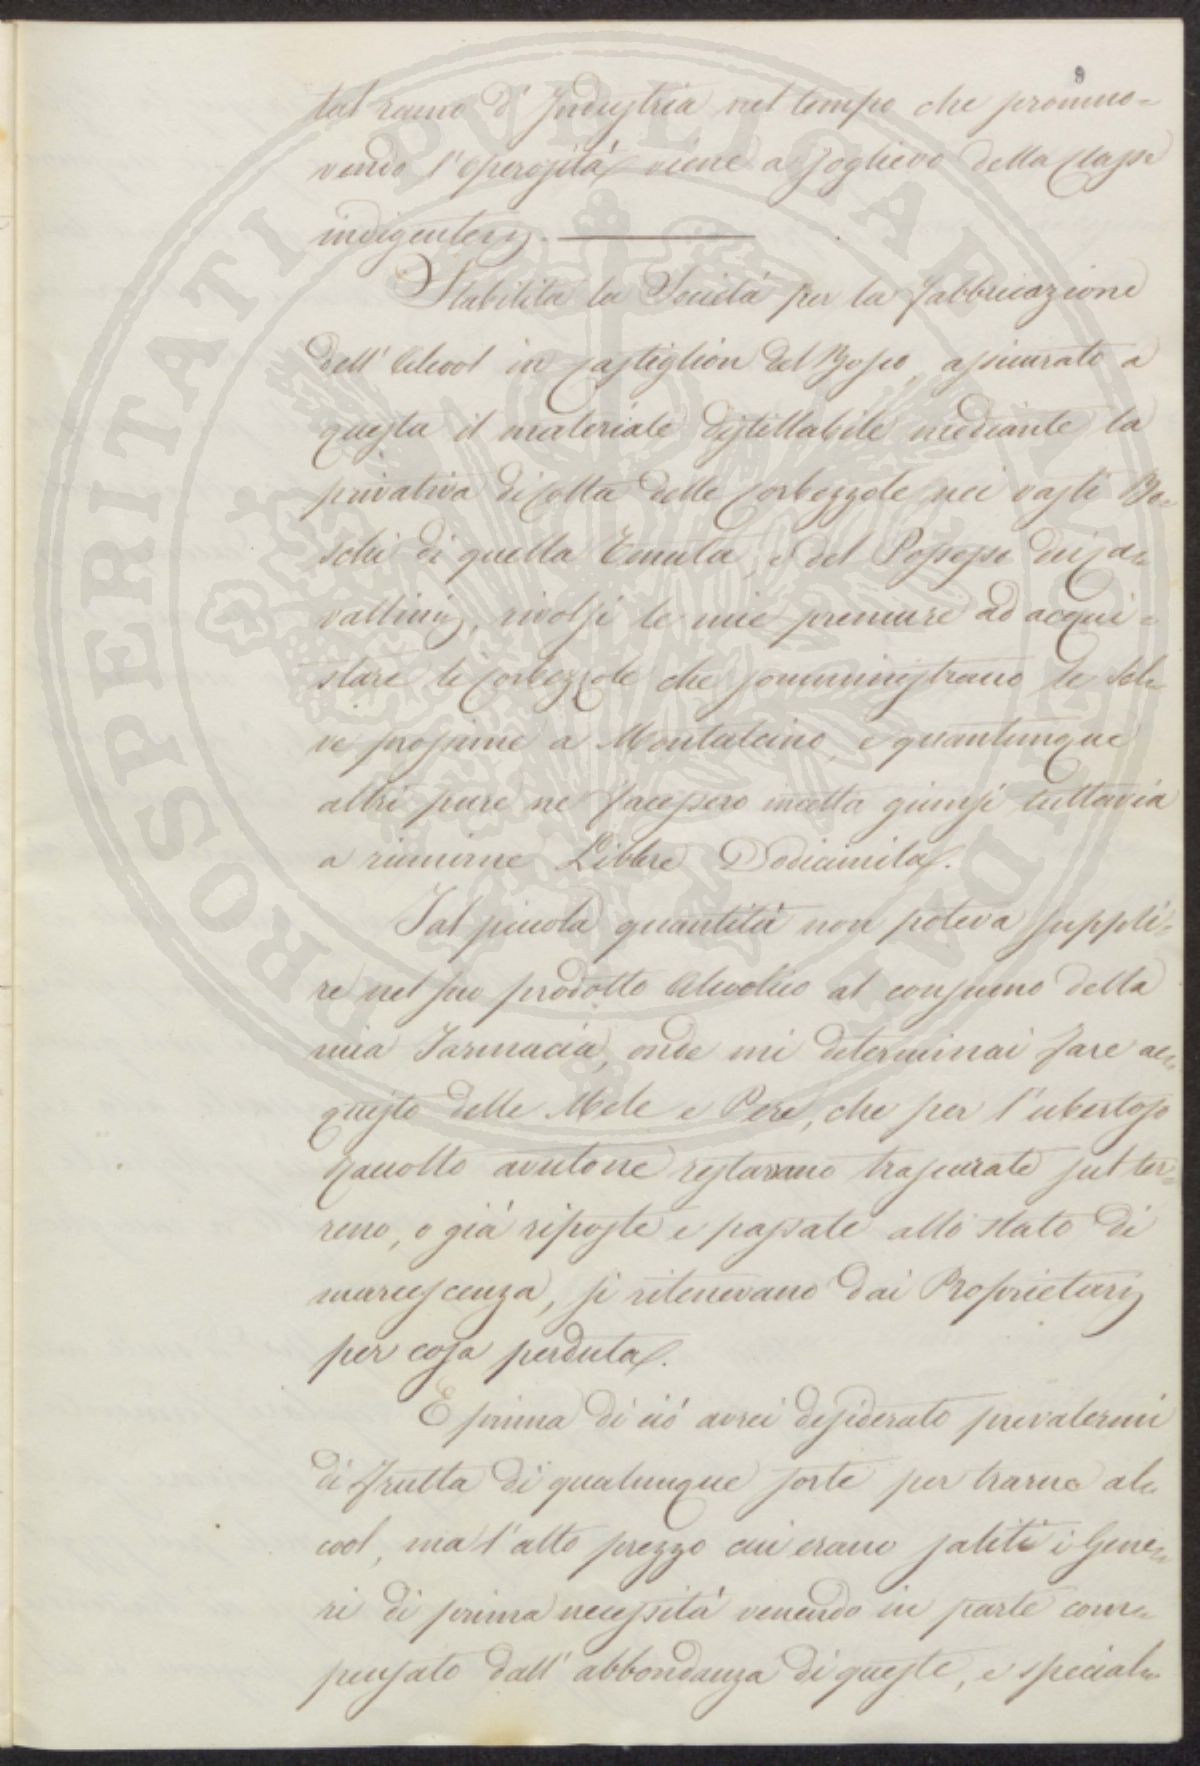 9
tal ramo d'Industria nel tempo che promuo=
vendo l'operosità viene a soglievo della Classe
indigente
Stabilita la Società per la fabbricazione
dell'Alcool in Castiglion del Bosco, assicurato a
questa il materiale distillabile mediante la
privativa di colta delle Corbezzole nei vasti Bo=
schi di quella Tenuta, e del Possesso dei Ca=
vallinij, rivolsi le mie premure ad acqui=
stare le Corbezzole che somministrano le Sel=
ve prossime a Montalcino, e quantunque
altri pure ne facessero incetta giunsi tuttavia
a riunirne Libbre Dodicimila.
Tal piccola quantità non poteva suppli=
re nel suo prodotto Alcoolico al consumo della
mia Farmacia, onde mi determinai fare ac=
quisto delle Mele e Pere, che per l'ubertoso
Raccolto avutone restavano trascurate sul ter=
reno, o già riposte e passate allo stato di
marcescenza, si ritenevano dai Proprietarij
per cosa perduta.
E prima di ciò avrei desiderato prevalermi
di Frutta di qualunque sorte per trarne al=
cool, ma l'alto prezzo cui erano saliti i Gene=
ri di prima necessità venendo in parte com=
pensato dall'abbondanza di queste, e special=
PROSPERITATI PUBLICAE AUGENDAE